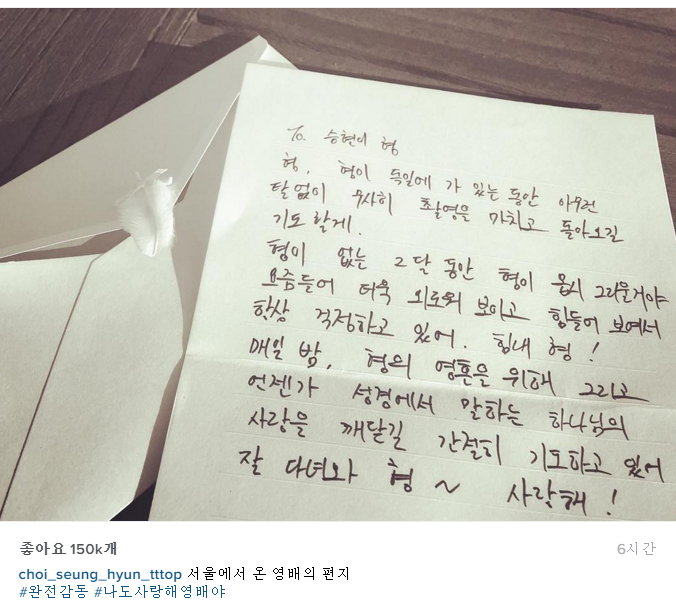 To. 승현이 형
형, 형이 독일에 가 있는 동안 아무런
탈 없이 무사히 촬영을 마치고 돌아오길
기도할게.
형이 없는 2달 동안 형이 몹시 그리울거야
요즘들어 더욱 외로워 보이고 힘들어 보여서
항상 걱정하고 있어. 힘내 형!
매일 밤, 형의 영혼을 위해 그리고
언젠가 성경에서 말하는 하나님의
사랑을 깨닫길 간절히 기도하고 있어
잘 다녀와 형 ~ 사랑해!
좋아요 150k개 6시간
choi_seung_hyun_tttop 서울에서 온 영배의 편지
#완전감동 #나도사랑해영배야